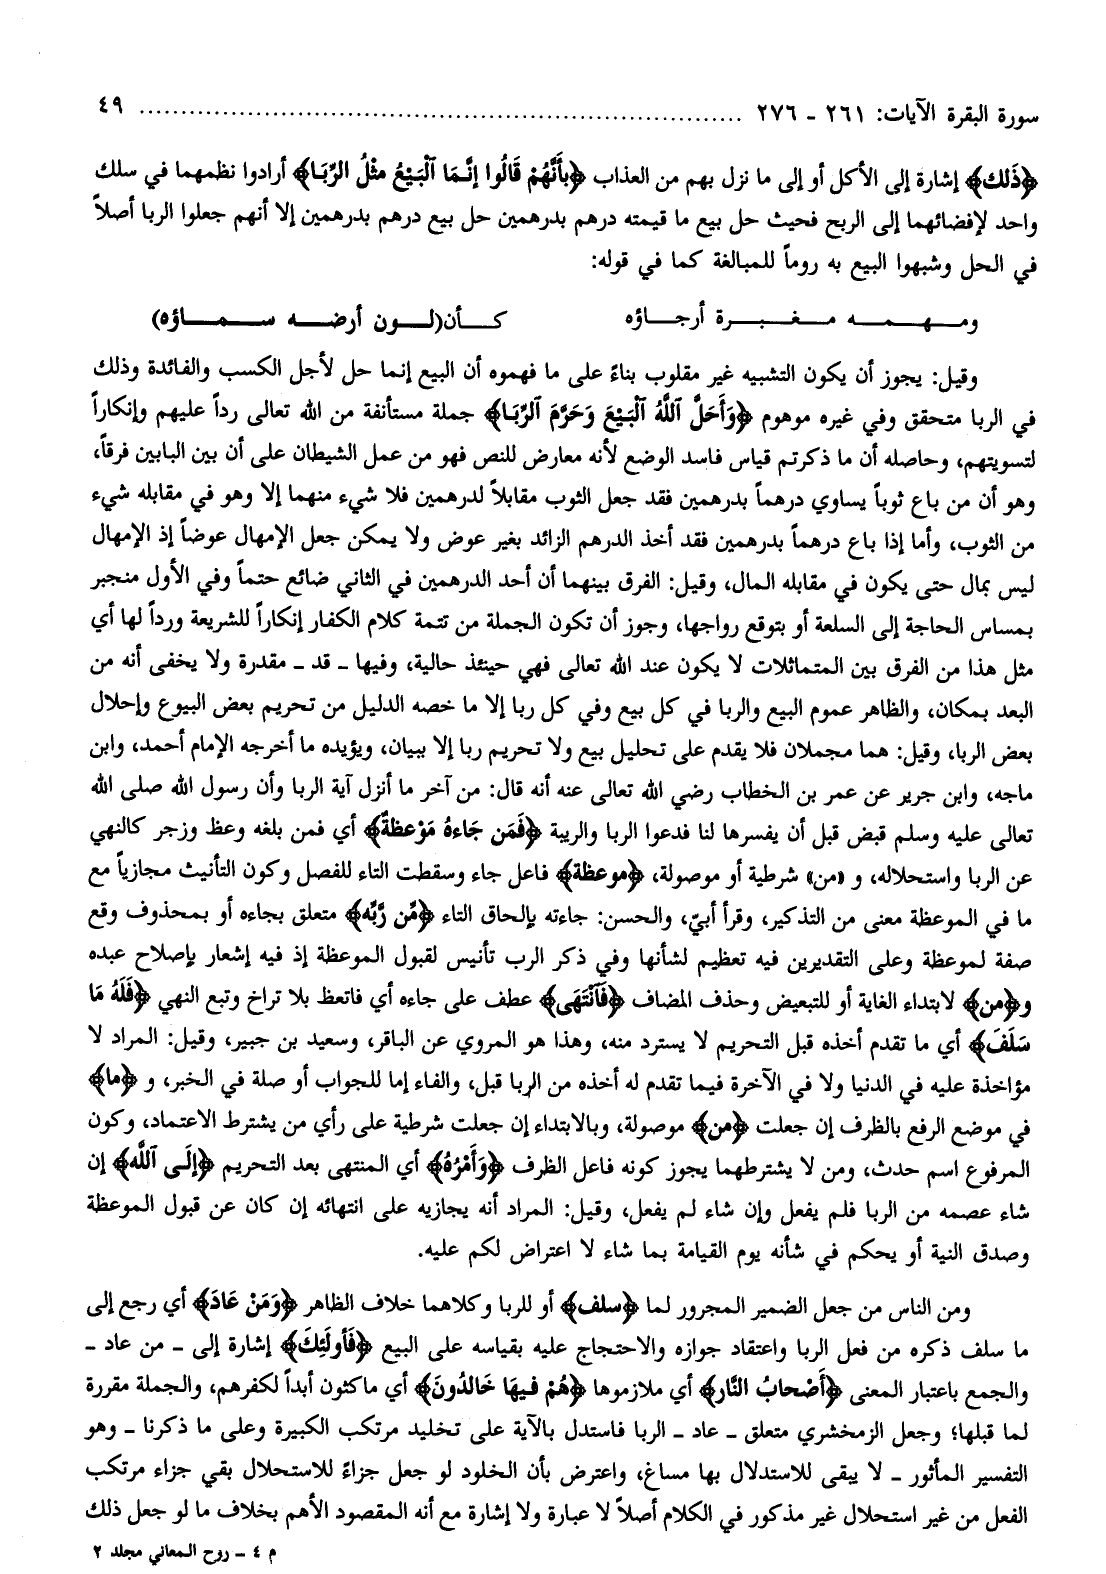 سورة البقرة الآيات: ٢٦١ - ٢٧٦ ........................................................................ ٤٩
﴿ذَلك﴾ إشارة إلى الأكل أو إلى ما نزل بهم من العذاب ﴿بِأَنَّهُمْ قَالُوا إنَّمَا ٱلْبَيْعُ مثْلُ الرِّبَا﴾ أرادوا نظمهما في سلك
واحد لإفضائهما إلى الربح فحيث حل بيع ما قيمته درهم بدرهمين حل بيع درهم بدرهمين إلا أنهم جعلوا الربا أصلاً
في الحل وشبهوا البيع به روماً للمبالغة كما في قوله:
ومـهـمـه مـغـبـرة أرجـاؤه كـأن(لـون أرضـه سـمـاؤه)
وقيل: يجوز أن يكون التشبيه غير مقلوب بناءً على ما فهموه أن البيع إنما حل لأجل الكسب والفائدة وذلك
في الربا متحقق وفي غيره موهوم ﴿وَأَحَلَّ ٱللَّهُ ٱلْبَيْعَ وَحَرَّمَ ٱلرِّبَا﴾ جملة مستأنفة من الله تعالى رداً عليهم وإنكاراً
لتسويتهم، وحاصله أن ما ذكرتم قياس فاسد الوضع لأنه معارض للنص فهو من عمل الشيطان على أن بين البابين فرقاً،
وهو أن من باع ثوباً يساوي درهماً بدرهمين فقد جعل الثوب مقابلاً لدرهمين فلا شيء منهما إلا وهو في مقابله شيء
من الثوب، وأما إذا باع درهماً بدرهمين فقد أخذ الدرهم الزائد بغير عوض ولا يمكن جعل الإمهال عوضاً إذ الإمهال
ليس بمال حتى يكون في مقابله المال، وقيل: الفرق بينهما أن أحد الدرهمين في الثاني ضائع حتماً وفي الأول منجبر
بمساس الحاجة إلى السلعة أو بتوقع رواجها، وجوز أن تكون الجملة من تتمة كلام الكفار إنكاراً للشريعة ورداً لها أي
مثل هذا من الفرق بين المتماثلات لا يكون عند الله تعالى فهي حينئذ حالية، وفيها - قد - مقدرة ولا يخفى أنه من
البعد بمكان، والظاهر عموم البيع والربا في كل بيع وفي كل ربا إلا ما خصه الدليل من تحريم بعض البيوع وإحلال
بعض الربا، وقيل: هما مجملان فلا يقدم على تحليل بيع ولا تحريم ربا إلا ببيان، ويؤيده ما أخرجه الإمام أحمد، وابن
ماجه، وابن جرير عن عمر بن الخطاب رضي الله تعالى عنه أنه قال: من آخر ما أنزل آية الربا وأن رسول الله صلى الله
تعالى عليه وسلم قبض قبل أن يفسرها لنا فدعوا الربا والريبة ﴿فَمَن جَاءهُ مَوْعظةٌ﴾ أي فمن بلغه وعظ وزجر كالنهي
عن الربا واستحلاله، و «من» شرطية أو موصولة، ﴿موعظة﴾ فاعل جاء وسقطت التاء للفصل وكون التأنيث مجازياً مع
ما في الموعظة معنى من التذكير، وقرأ أبيّ، والحسن: جاءته بإلحاق التاء ﴿مِّن رَّبِّه﴾ متعلق بجاءه أو بمحذوف وقع
صفة لموعظة وعلى التقديرين فيه تعظيم لشأنها وفي ذكر الرب تأنيس لقبول الموعظة إذ فيه إشعار بإصلاح عبده
و﴿من﴾ لابتداء الغاية أو للتبعيض وحذف المضاف ﴿فَٱنْتَهَى﴾ عطف على جاءه أي فاتعظ بلا تراخ وتبع النهي ﴿فَلَهُ مَا
سَلَفَ﴾ أي ما تقدم أخذه قبل التحريم لا يسترد منه، وهذا هو المروي عن الباقر، وسعيد بن جبير، وقيل: المراد لا
مؤاخذة عليه في الدنيا ولا في الآخرة فيما تقدم له أخذه من الربا قبل، والفاء إما للجواب أو صلة في الخبر، و ﴿ما﴾
في موضع الرفع بالظرف إن جعلت ﴿من﴾ موصولة، وبالابتداء إن جعلت شرطية على رأي من يشترط الاعتماد، وكون
المرفوع اسم حدث، ومن لا يشترطهما يجوز كونه فاعل الظرف ﴿وَأَمْرُهُ﴾ أي المنتهى بعد التحريم ﴿إلَى ٱللَّه﴾ إن
شاء عصمه من الربا فلم يفعل وإن شاء لم يفعل، وقيل: المراد أنه يجازيه على انتهائه إن كان عن قبول الموعظة
وصدق النية أو يحكم في شأنه يوم القيامة بما شاء لا اعتراض لكم عليه.
ومن الناس من جعل الضمير المجرور لما ﴿سلف﴾ أو للربا وكلاهما خلاف الظاهر ﴿وَمَنْ عَادَ﴾ أي رجع إلى
ما سلف ذكره من فعل الربا واعتقاد جوازه والاحتجاج عليه بقياسه على البيع ﴿فَأولَئِكَ﴾ إشارة إلى - من عاد -
والجمع باعتبار المعنى ﴿أَصْحَابُ النَّار﴾ أي ملازموها ﴿هُمْ فيهَا خَالدُونَ﴾ أي ماكثون أبداً لكفرهم، والجملة مقررة
لما قبلها؛ وجعل الزمخشري متعلق - عاد - الربا فاستدل بالآية على تخليد مرتكب الكبيرة وعلى ما ذكرنا - وهو
التفسير المأثور - لا يبقى للاستدلال بها مساغ، واعترض بأن الخلود لو جعل جزاءً للاستحلال بقي جزاء مرتكب
الفعل من غير استحلال غير مذكور في الكلام أصلاً لا عبارة ولا إشارة مع أنه المقصود الأهم بخلاف ما لو جعل ذلك
م ٤ - روح المعاني مجلد ٢